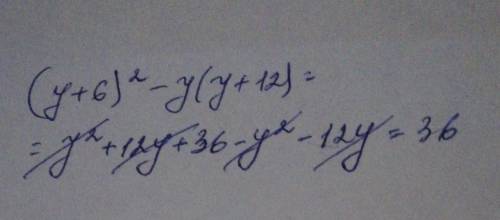 (y+6)² - y(y+12) =
= y² + 12y + 36 - y² - 12y = 36